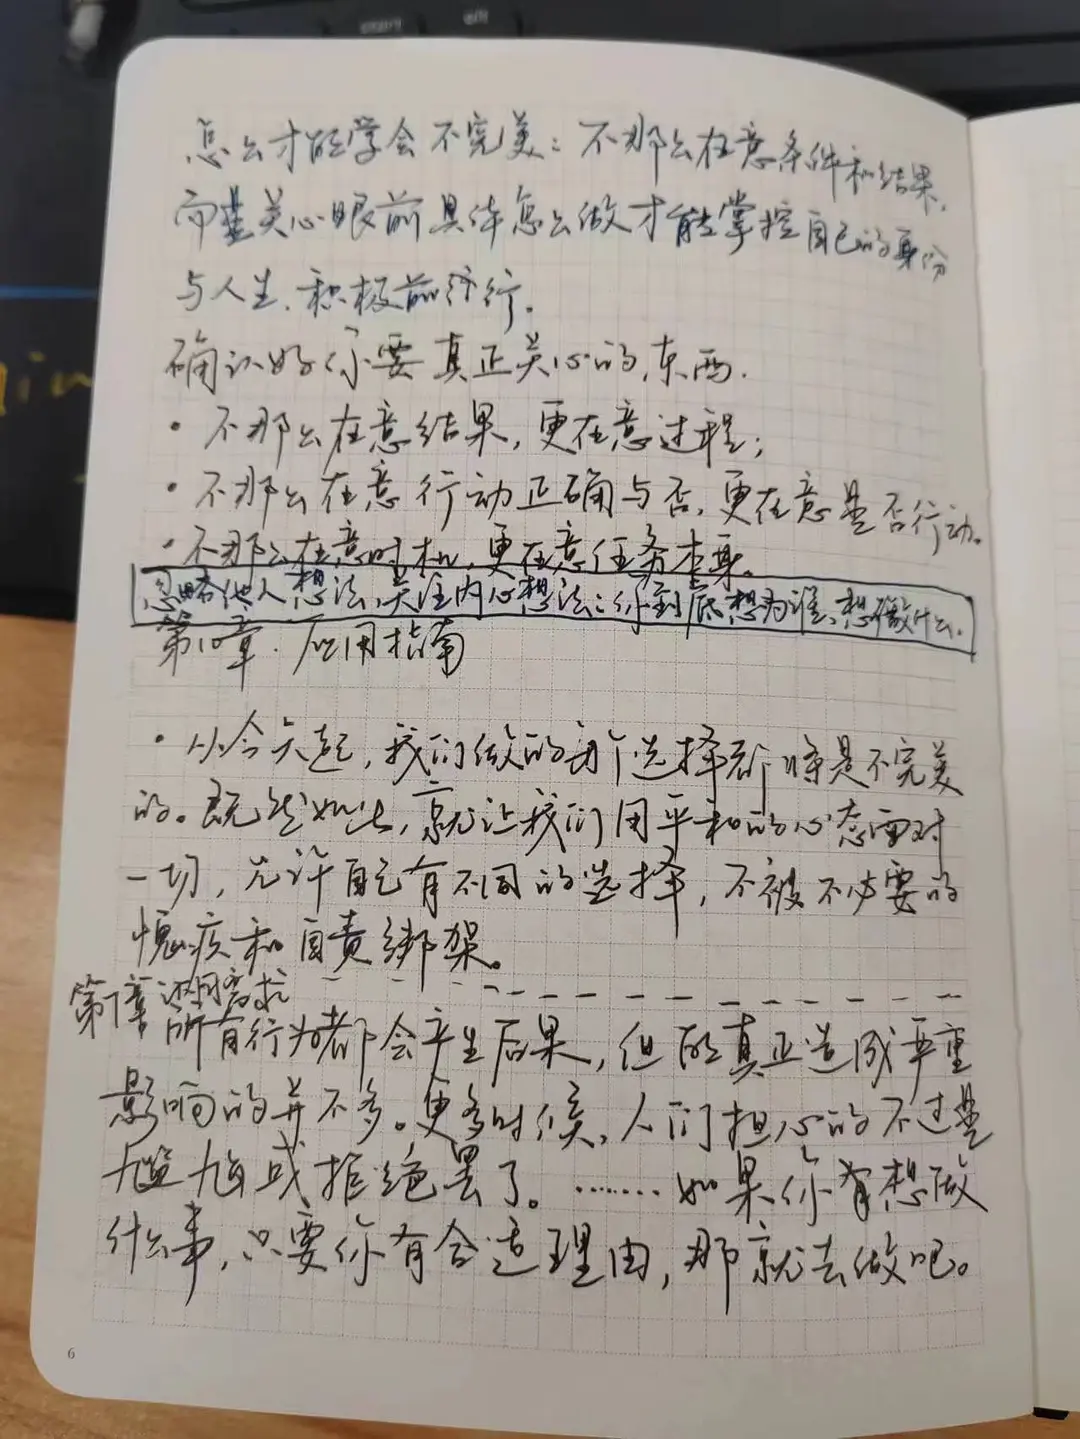 怎么才能学会不完美:不那么在意条件和结果,
而是关心眼前具体怎么做才能掌控自己的身份
与人生.积极前行.
确认好你要真正关心的东西.
·不那么在意结果,更在意过程;
·不那么在意行动正确与否,更在意是否行动。
·不那么在意时机,更在意任务本身。
忽略他人想法,关注内心想法:你到底想为谁、想做什么.
第10章.应用指南
·从今天起,我们做的每个选择都将是不完美
的。既然如此,就让我们用平和的心态面对
一切,允许自己有不同的选择,不被不必要的
愧疚和自责绑架。
第7章 认同需求
所有行为都会产生后果,但能真正造成严重
影响的并不多。更多时候,人们担心的不过是
尴尬或拒绝罢了。……如果你有想做
什么事,只要你有合适理由,那就去做吧。
6